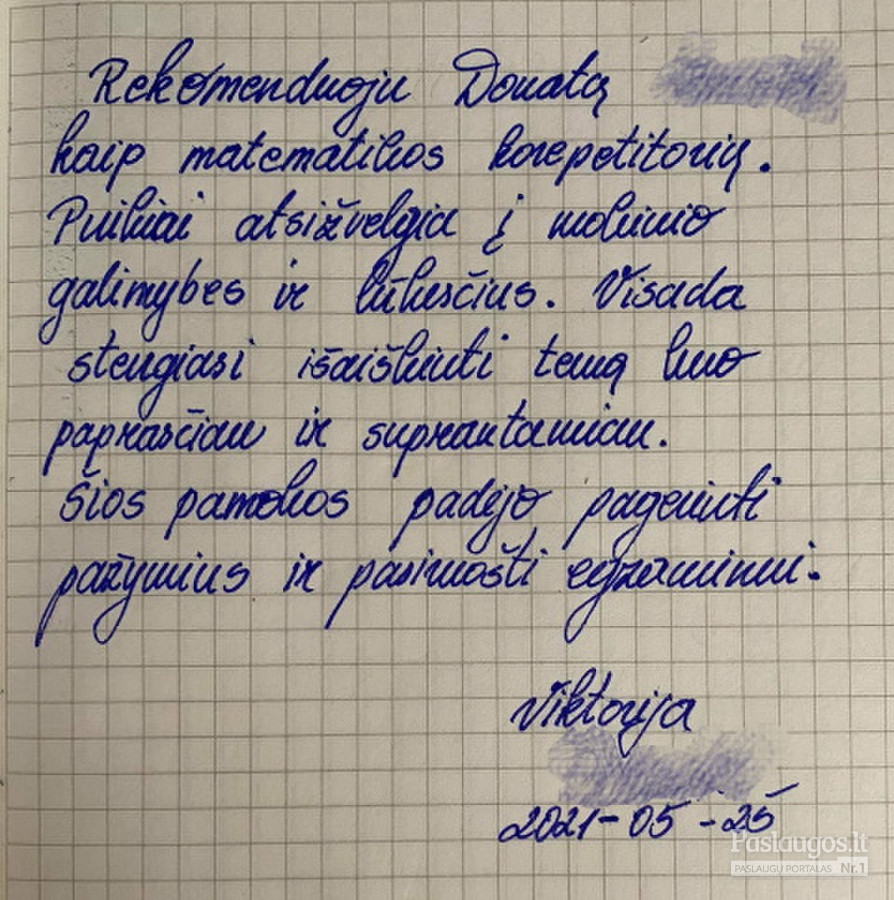 Rekomenduoju Donatą
kaip matematikos korepetitorių.
Puikiai atsižvelgia į mokinio
galimybes ir lūkesčius. Visada
stengiasi išaiškinti temą kuo
paprasčiau ir suprantamiau.
Šios pamokos padėjo pagerinti
pažymius ir pasiruošti egzaminui.
Viktorija
2021-05-25
Paslaugos.lt
PASLAUGŲ PORTALAS Nr.1